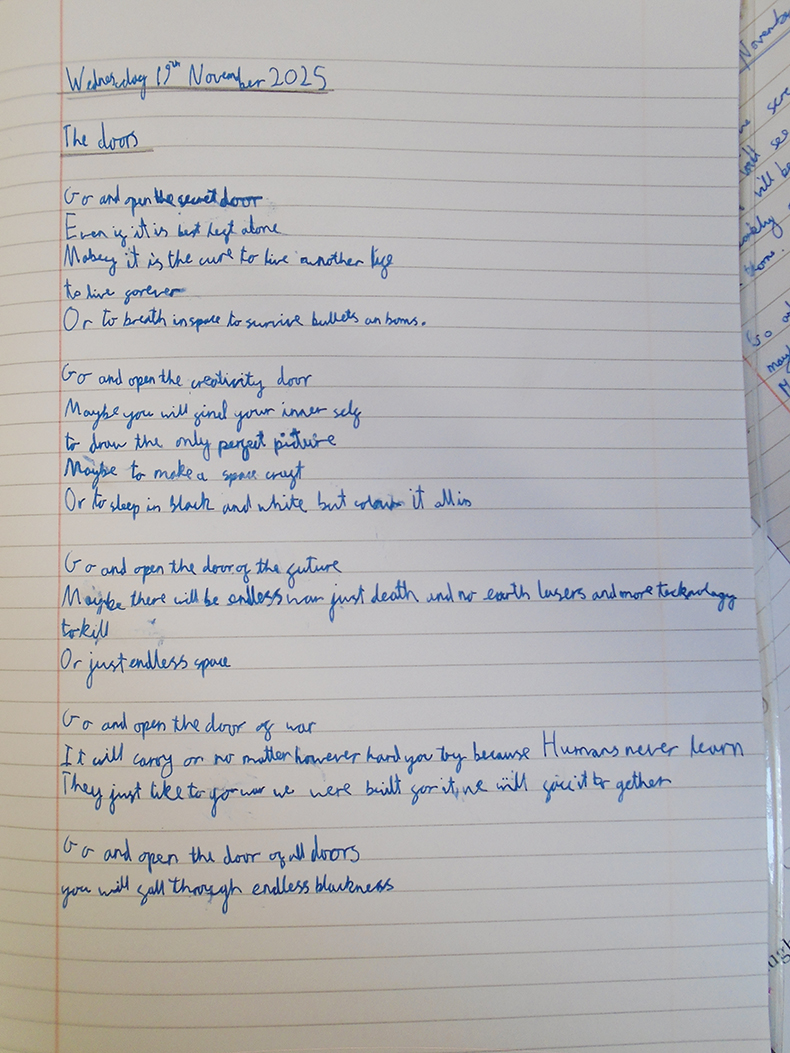 Wednesday 19th November 2025
The doors
Go and open the secret door
Even if it is best left alone
Mabey it is the cure to live another life
to live forever
Or to breath in space to survive bullets an boms.
Go and open the creativity door
Maybe you will find your inner self
to draw the only perfect picture
Maybe to make a space craft
Or to sleep in black and white but colour it all in
Go and open the door of the future
Maybe there will be endless war just death and no earth lasers and more technology
to kill
Or just endless space
Go and open the door of war
It will carry on no matter however hard you try because Humans never learn
They just like to go war we were built for it, we will it to gether
Go and open the door of all doors
you will fall through endless blackness